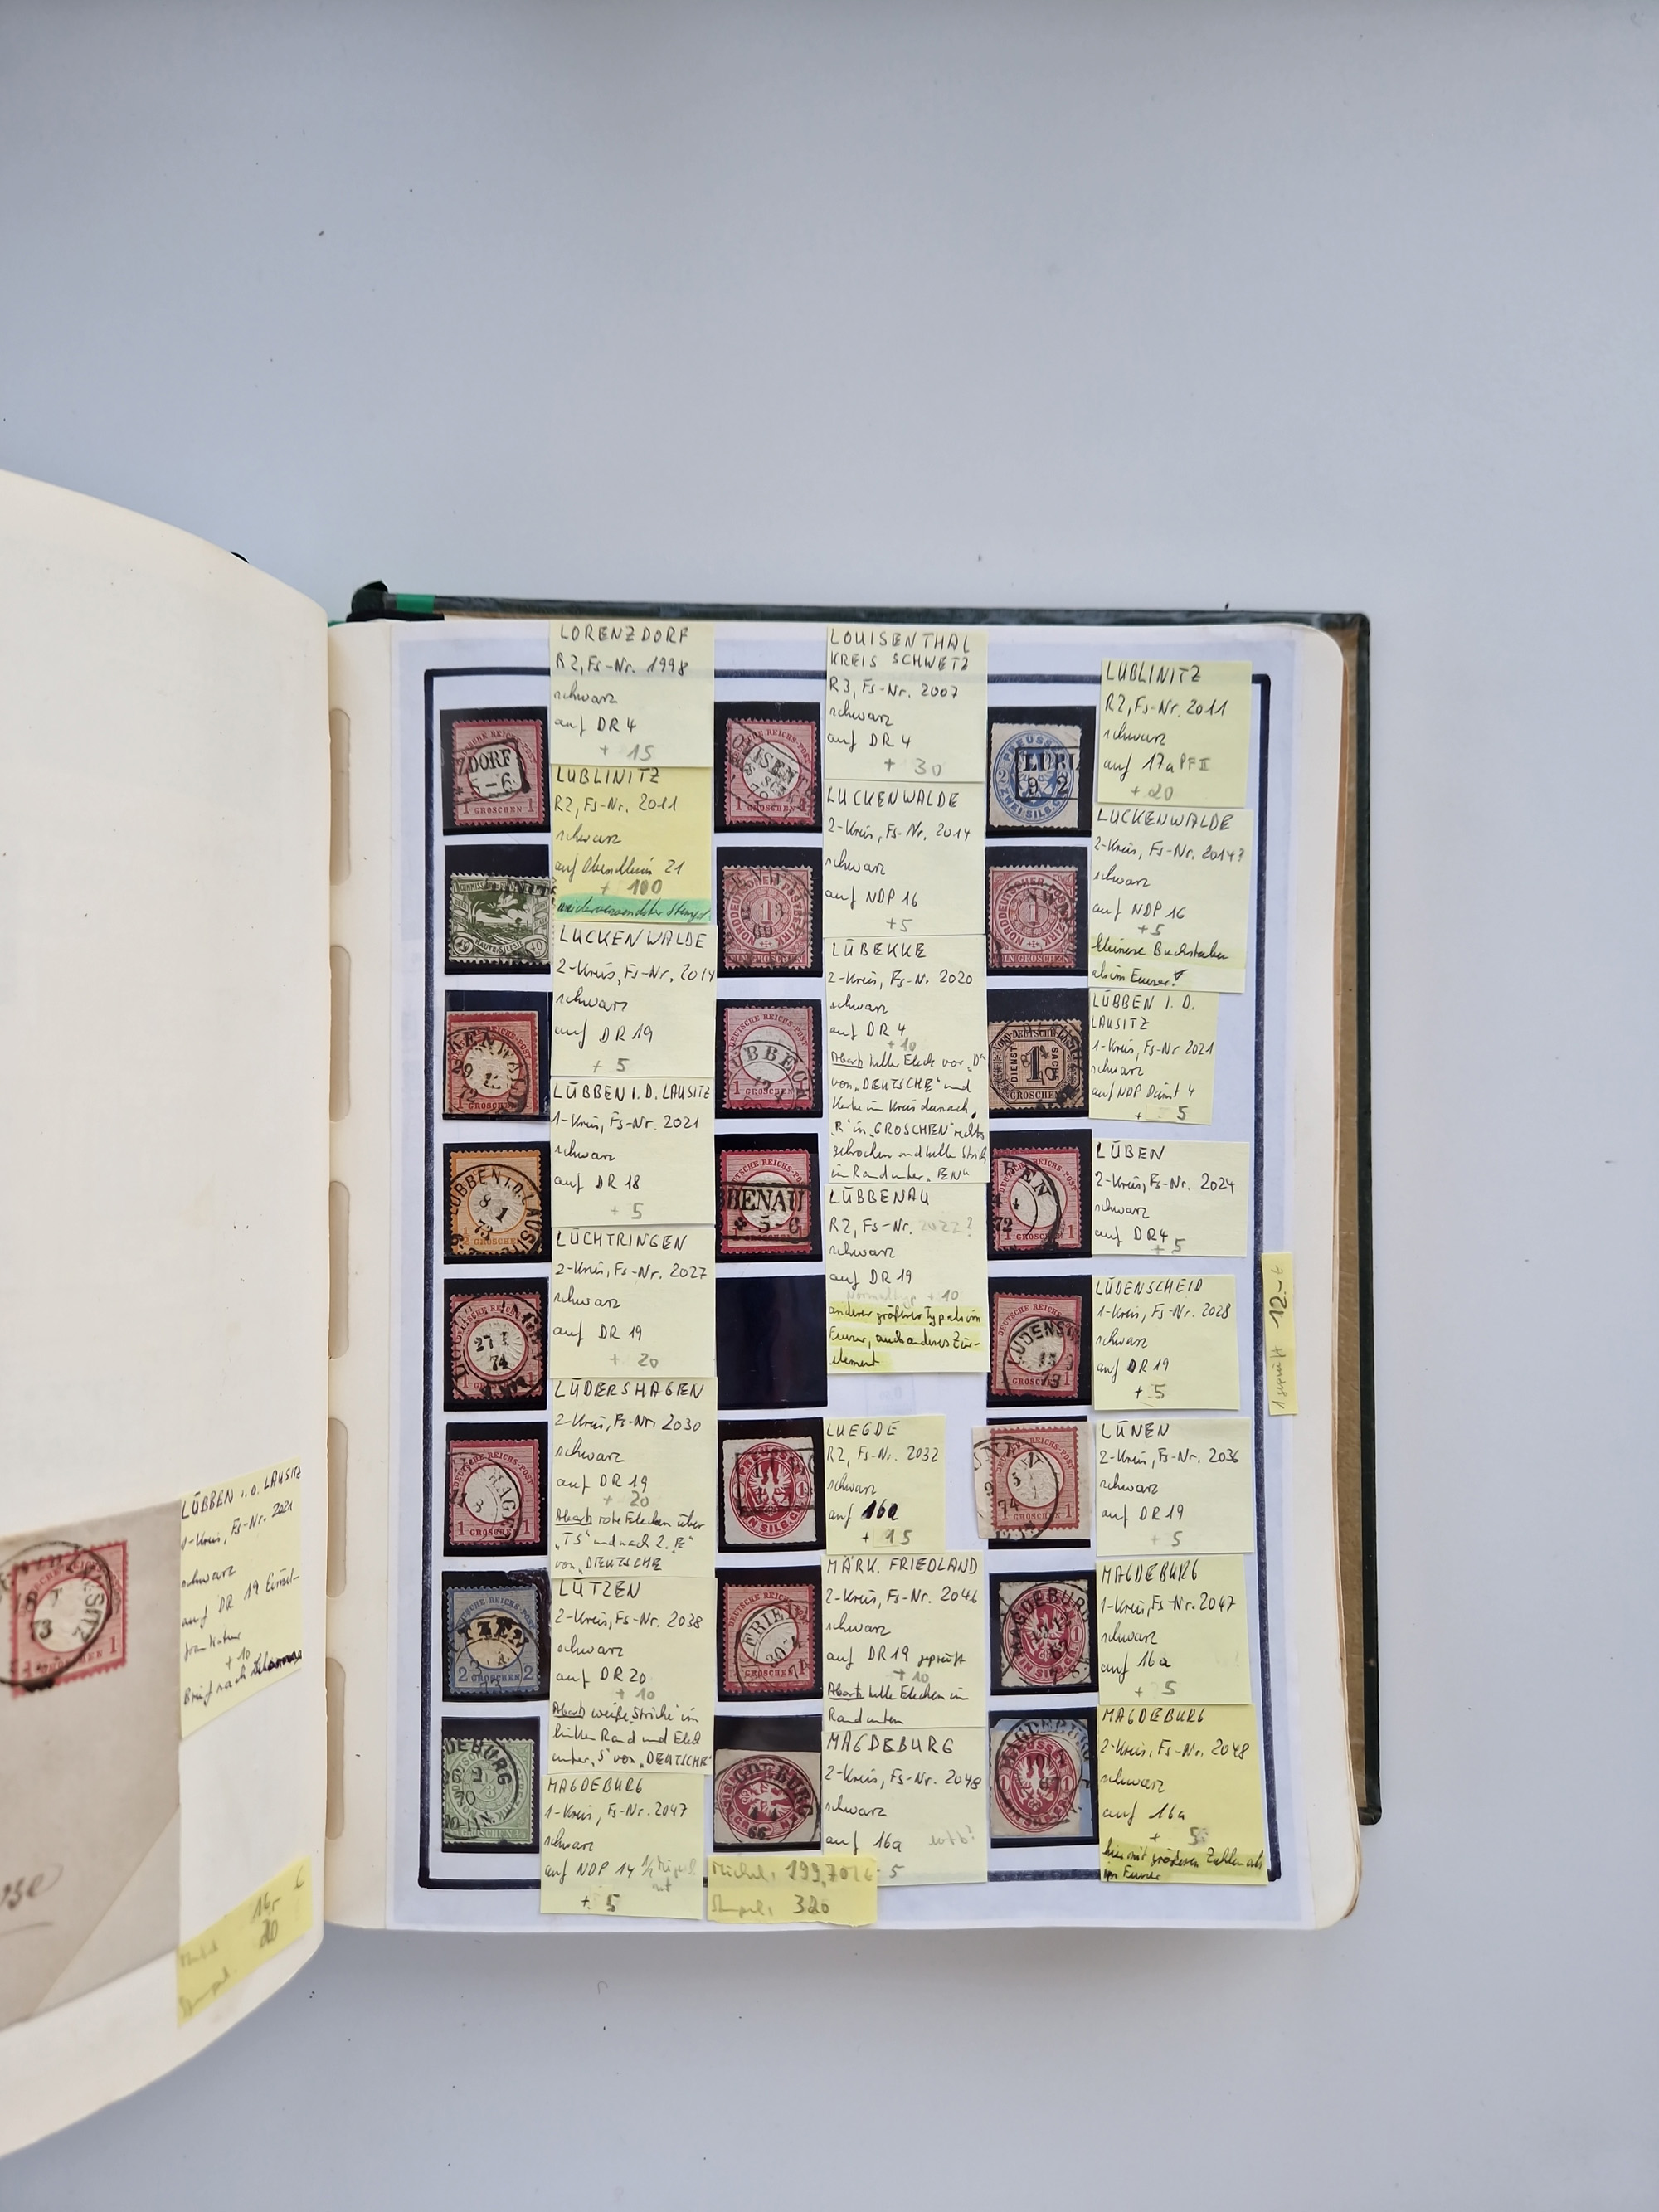 LORENZDORF
R2, Fs-Nr. 1998
schwarz
auf DR 4
+ 15
LOUISENTHAL
KREIS SCHWETZ
R3, Fs-Nr. 2007
schwarz
auf DR 4
+ 30
LUBLINITZ
R2, Fs-Nr. 2011
schwarz
auf 17a PF II
+ 20
ZDORF
5-6
1 GROSCHEN 1
PREUSSEN
ZWEI SILB.GR.
LUBLINITZ
R2, Fs-Nr. 2011
schwarz
auf Oberschlesien 21
+ 100
wiederverwendeter Stempel
LUCKENWALDE
2-Kreis, Fs-Nr. 2014
schwarz
auf NDP 16
+5
LUCKENWALDE
2-Kreis, Fs-Nr. 2014?
schwarz
auf NDP 16
+5
kleinere Buchstaben
als im Feuser!
HAUTE-SILESIE
LUCKENWALDE
2-Kreis, Fs-Nr. 2014
schwarz
auf DR 19
+ 5
LÜBEKKE
2-Kreis, Fs-N. 2020
schwarz
auf DR 4
+ 10
Abart heller Fleck vor „D"
von „DEUTSCHE" und
Kerbe im Kreis danach,
„R" in „GROSCHEN" rechts
gebrochen und heller Strich
im Rand unter „EN"
LÜBBEN I. D.
LAUSITZ
1-Kreis, Fs-Nr 2021
schwarz
auf NDP Dienst 4
+ 5
LÜBBEN I. D. LAUSITZ
1-Kreis, Fs-Nr. 2021
schwarz
auf DR 18
+ 5
LÜBBENAU
R2, Fs-Nr. 2022?
schwarz
auf DR 19
Normaltyp + 10
anderer größerer Typ als im
Feuser, auch anderes Zier-
element
LÜBEN
2-Kreis, Fs-Nr. 2024
schwarz
auf DR4
+ 5
LÜBBEN I. D. LAUSITZ
8 1
73
BENAU
5-6
LÜCHTRINGEN
2-Kreis, Fs-Nr. 2027
schwarz
auf DR 19
+ 20
LÜDENSCHEID
1-Kreis, Fs-Nr. 2028
schwarz
auf DR 19
+ 5
1 geprüft 12.- €
LÜDERSHAGEN
2-Kreis, Fs-Nr. 2030
schwarz
auf DR 19
+ 20
Abart rote Flecken über
„TS" und nach 2. „E"
von „DEUTSCHE
LUEGDE
R2, Fs-Nr. 2032
schwarz
auf 16a
+ 15
LÜNEN
2-Kreis, Fs-Nr. 2036
schwarz
auf DR 19
+ 5
LÜTZEN
2-Kreis, Fs-Nr. 2038
schwarz
auf DR 20
+ 10
Abart weiße Striche im
linken Rand und Fleck
unter „S" von „DEUTSCHE"
MÄRK. FRIEDLAND
2-Kreis, Fs-Nr. 2046
schwarz
auf DR 19 geprüft
+ 10
Abart helle Flecken im
Rand unten
MAGDEBURG
1-Kreis, Fs-Nr. 2047
schwarz
auf 16a
+ 5
MAGDEBURG
1-Kreis, Fs-Nr. 2047
schwarz
auf NDP 14
+ 5
MAGDEBURG
2-Kreis, Fs-Nr. 2048
schwarz
auf 16a
5
MAGDEBURG
2-Kreis, Fs-Nr. 2048
schwarz
auf 16a
+ 5
hier mit größeren Zahlen als
im Feuser
Michel: 199,70 €
Stempel: 320
LÜBBEN I. D. LAUSITZ
1-Kreis, Fs-Nr. 2021
schwarz
auf DR 19 Einzel-
frankatur
+ 10
Brief nach
Michel 16,- €
Stempel 20